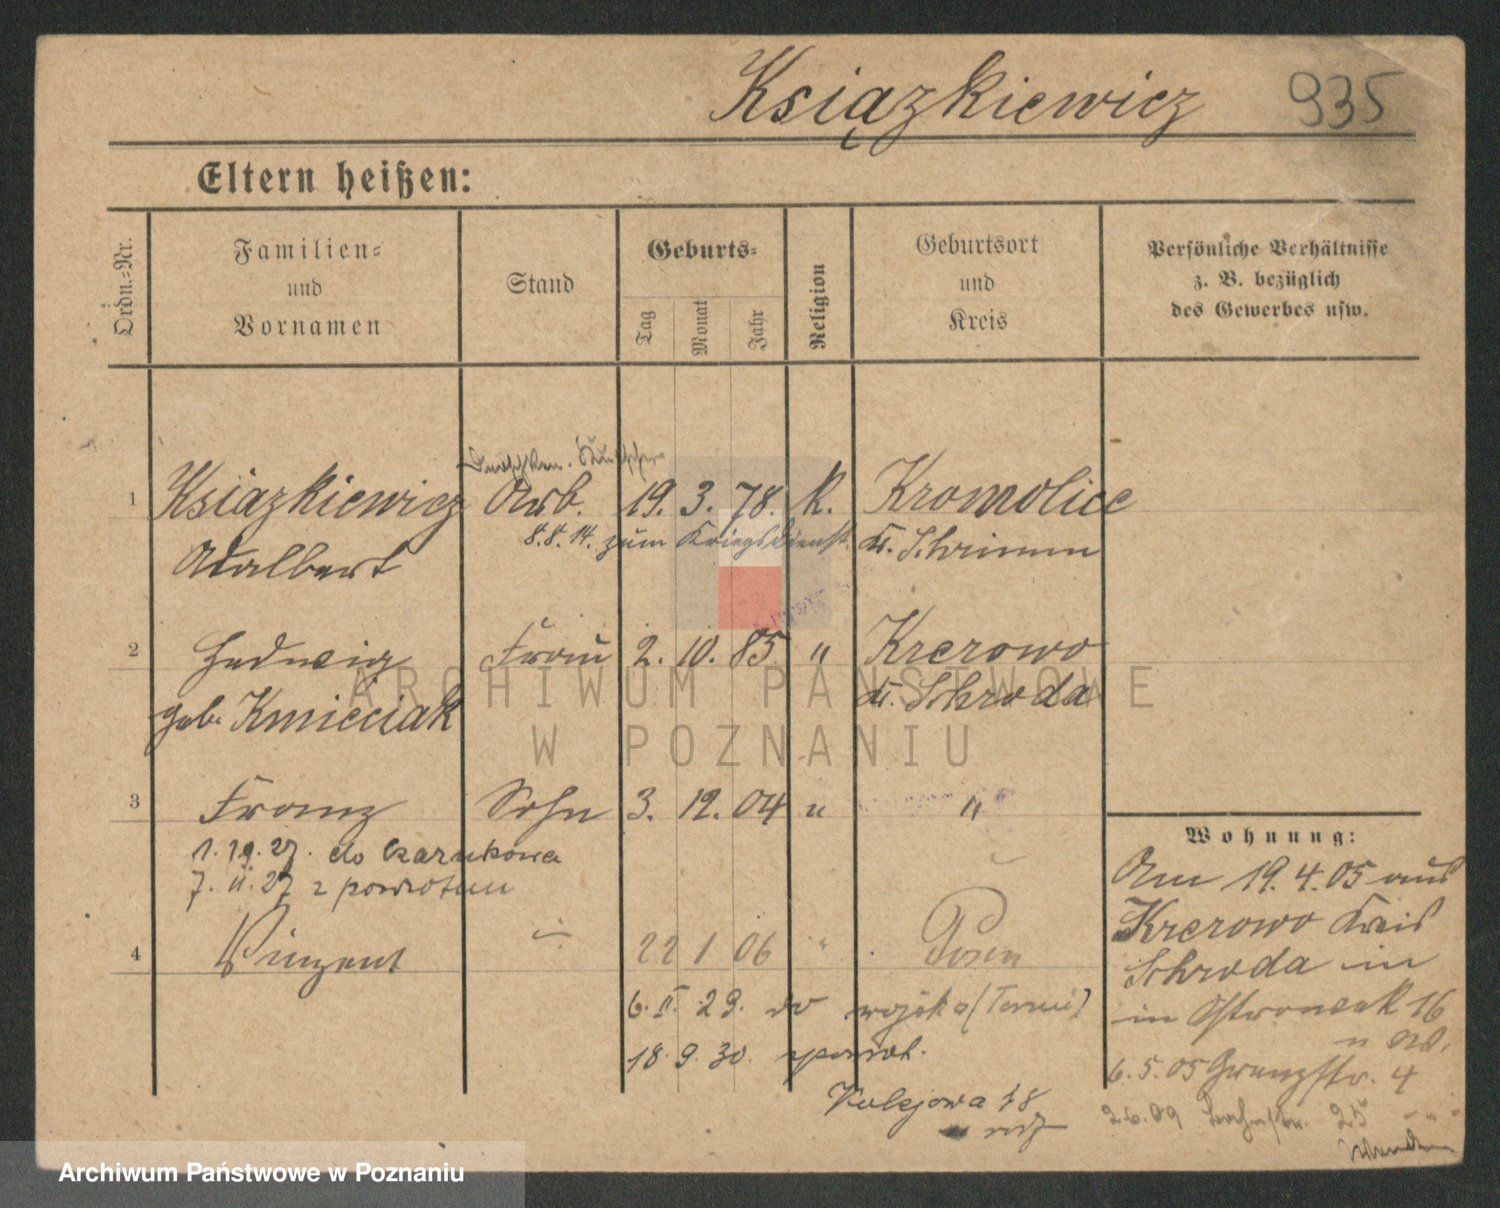 Książkiewicz 935
Eltern heißen:
Ordn.=Nr.
Familien=
und
Vornamen
Stand
Geburts=
Tag
Monat
Jahr
Religion
Geburtsort
und
Kreis
Persönliche Verhältnisse
z. B. bezüglich
des Gewerbes usw.
1 Książkiewicz Arb. 19. 3. 78. K. Kromolice
8.8.14. zum Kriegsdienst. Kr. Schrimm
Adalbert
2 Hedwig Frau 2. 10. 85 " Krerowo
geb. Kmieciak Kr. Schroda
3 Franz Sohn 3. 12. 04 " "
27. do Czarnkowa
7. II. 27 z powrotem
4 Vinzent 22 1 06 " Posen
6. II. 29. do wojska (Toruń)
18. 9. 30. powrot.
Kolejowa 48
Wohnung:
Am 19. 4. 05 aus
Krerowo Kreis
Schroda in
in Ostrowek 16
6. 5. 05 4
2.6.09 25
ARCHIWUM PAŃSTWOWE
W POZNANIU
Archiwum Państwowe w Poznaniu